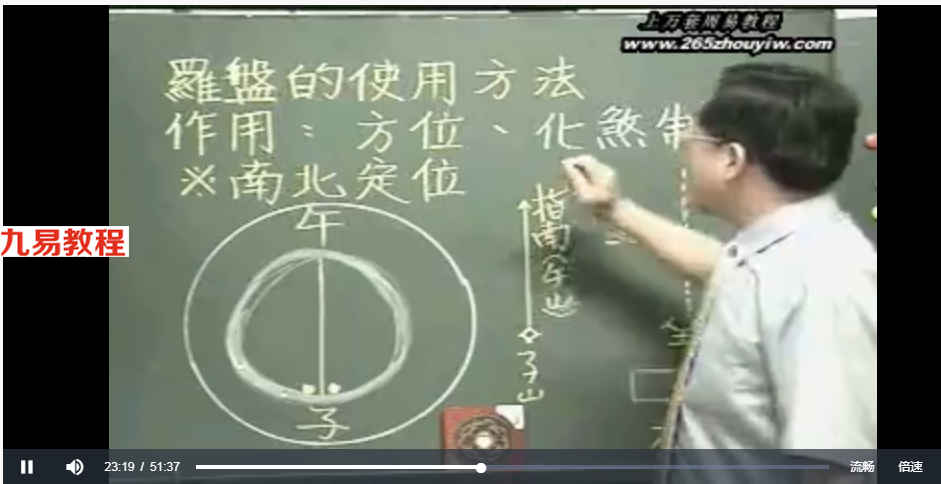 上万套周易教程
www.265zhouyiw.com
羅盤的使用方法
作用：方位、化煞制
※南北定位
午
指南(午山)
九易教程
子山
子
23:19 / 51:37
流畅
倍速